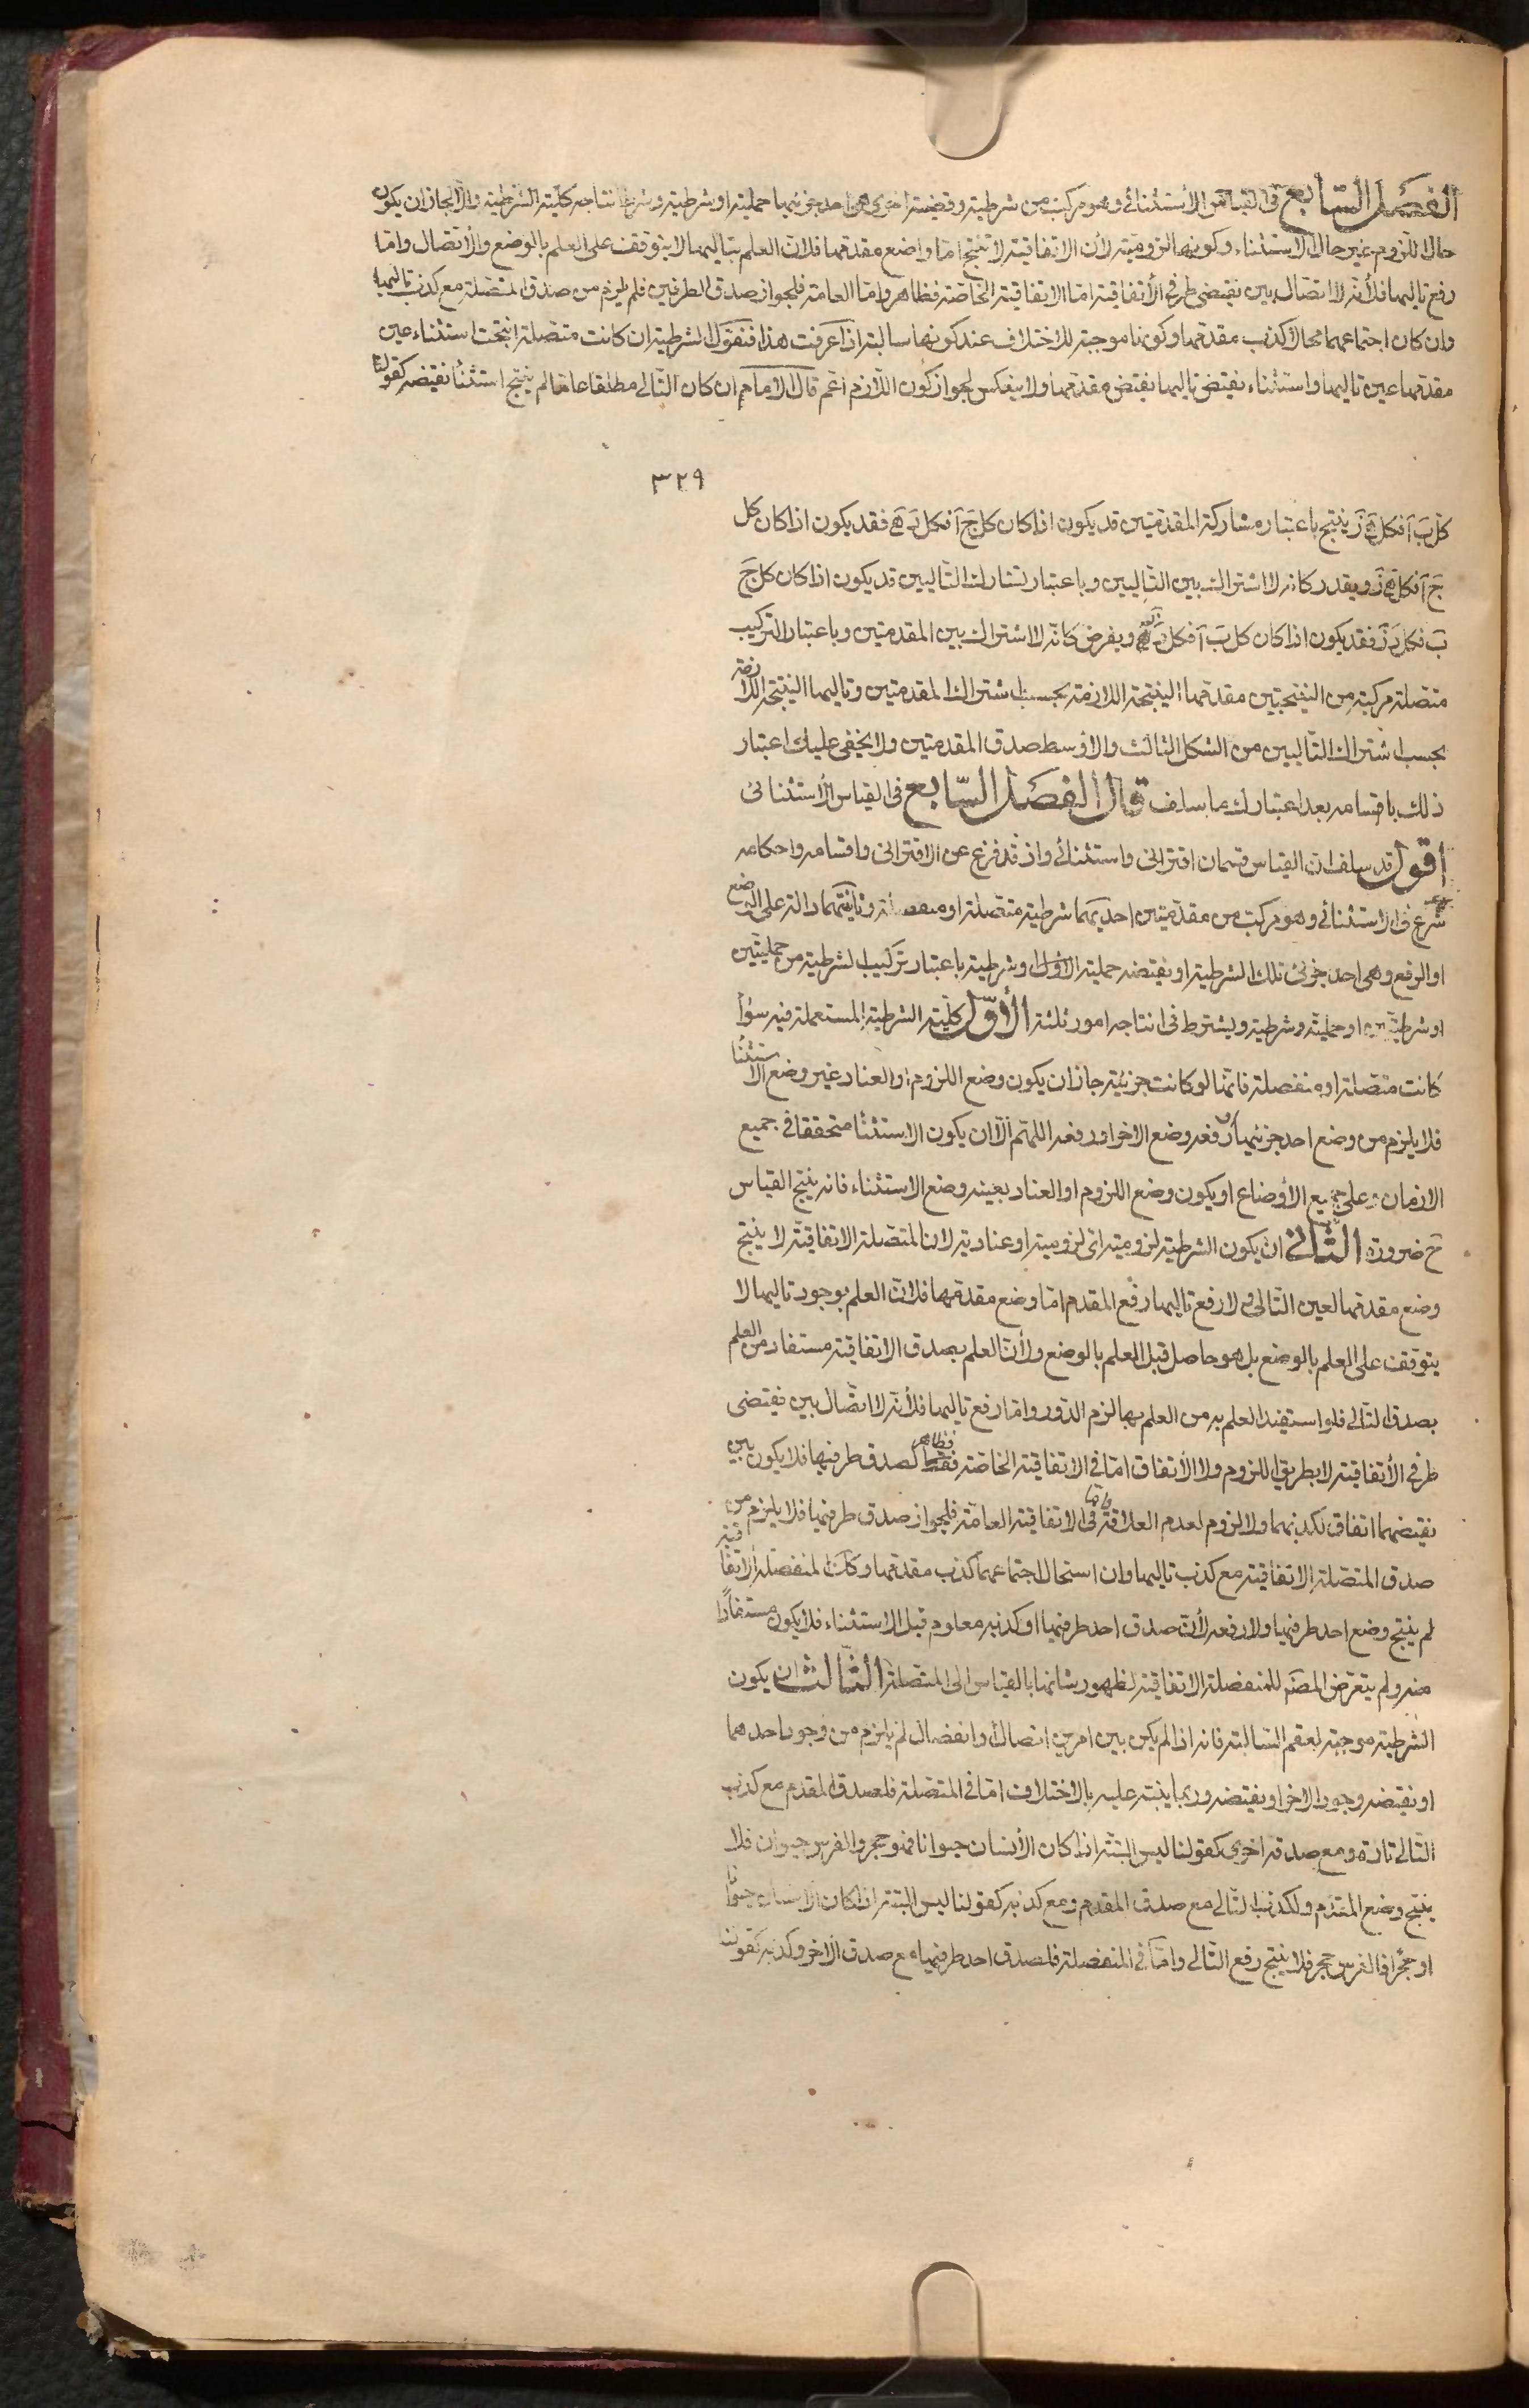 الفصل السابع فى القياس الاستثنائى وهو مركب من شرطية وقضية اخرى هى احد جزئيها حملية او شرطية وشرط انتاجه كلية الشرطية والا لجاز ان يكون
حال اللزوم غير حال الاستثناء وكونها لزومية لان الاتفاقية لا تنتج اما واضع مقدمها فلان العلم بتاليها لا يتوقف على العلم بالوضع والاتصال واما
رفع تاليها فلانه لا اتصال بين نقيضى طرفى الاتفاقية اما الاتفاقية الخاصة فظاهر واما العامة فلجواز صدق الطرفين فلم يلزم من صدق المتصلة مع كذب تاليها
وان كان اجتماعهما محالا كذب مقدمها وكونها موجبة للاختلاف عند كونها سالبة اذا عرفت هذا فنقول الشرطية ان كانت متصلة انتجت استثناء عين
مقدمها عين تاليها واستثناء نقيض تاليها نقيض مقدمها ولا ينعكس لجواز كون اللازم اعم قال الامام ان كان التالى مطلقا عاما لم ينتج استثنأ نقيضه كقولنا
٣٢٩
كل ب آ فكل ه ز ينتج باعتبار مشاركة المقدمتين قد يكون اذا كان كل ج آ فكل د ه فقد يكون اذا كان كل
ج آ فكل ه ز ويقدر كانه لا اشتراك بين التاليين وباعتبار تشارك التاليين قد يكون اذا كان كل ج
ب فكل د ز فقد يكون اذا كان كل ب آ فكل د ه ويفرض كانه لا اشتراك بين المقدمتين وباعتبار التركيب
متصلة مركبة من النتيجتين مقدمها النتيجة اللازمة بحسب اشتراك المقدمتين وتاليها النتيجة اللازمة
بحسب اشتراك التاليين من الشكل الثالث والاوسط صدق المقدمتين ولا يخفى عليك اعتبار
ذلك باقسامه بعد اعتبارك ما سلف قال الفصل السابع فى القياس الاستثنائى
اقول قد سلف ان القياس قسمان اقترانى واستثنائى واذ قد فرغ عن الاقترانى واقسامه واحكامه
شرع فى الاستثنائى وهو مركب من مقدمتين احديهما شرطية متصلة او منفصلة وثانيتهما دالة على الوضع
او الرفع وهى احد جزئى تلك الشرطية او نقيضه حملية الاول او شرطية باعتبار تركيب الشرطية من حمليتين
او شرطيتين او حملية وشرطية ويشترط فى انتاجه امور ثلثة الاول كلية الشرطية المستعملة فيه سوأ
كانت متصلة او منفصلة فانها لو كانت جزئية جاز ان يكون وضع اللزوم او العناد غير وضع الاستثنأ
فلا يلزم من وضع احد جزئيها او رفعه وضع الاخر او رفعه اللهم الا ان يكون الاستثنأ متحققا فى جميع
الازمان وعلى جميع الاوضاع او يكون وضع اللزوم او العناد بعينه وضع الاستثناء فانه ينتج القياس
ح ضرورة الثانى ان يكون الشرطية لزومية اى لزومية او عنادية لان المتصلة الاتفاقية لا ينتج
وضع مقدمها لعين التالى ولا رفع تاليها رفع المقدم اما وضع مقدمها فلان العلم بوجود تاليها لا
يتوقف على العلم بالوضع بل هو حاصل قبل العلم بالوضع ولان العلم بصدق الاتفاقية مستفاد من العلم
بصدق التالى فلو استفيد العلم به من العلم بها لزم الدور واما رفع تاليها فلانه لا اتصال بين نقيضى
طرفى الاتفاقية لا بطريق اللزوم ولا الاتفاق اما فى الاتفاقية الخاصة فظاهر لصدق طرفيها فلا يكون بين
نقيضهما اتفاق لكذبهما ولا لزوم لعدم العلاقة واما فى الاتفاقية العامة فلجواز صدق طرفيها فلا يلزم من
صدق المتصلة الاتفاقية مع كذب تاليها وان استحال اجتماعهما كذب مقدمها وكذا المنفصلة الاتفاقية
لم ينتج وضع احد طرفيها ولا رفعه لان صدق احد طرفيها او كذبه معلوم قبل الاستثناء فلا يكون مستفادا
منه ولم يتعرض المصنم للمنفصلة الاتفاقية لظهور شانها بالقياس الى المتصلة الثالث ان يكون
الشرطية موجبة لعقم السالبة فانه اذا لم يكن بين امرين اتصال او انفصال لم يلزم من وجود احدهما
او نقيضه وجود الاخر او نقيضه وربما ينبه عليه بالاختلاف اما فى المتصلة فلصدق المقدم مع كذب
التالى تارة ومع صدقه اخرى كقولنا ليس البتة اذا كان الانسان حيوانا فهو حجر والفرس حيوان فلا
ينتج وضع المقدم ولكذب التالى مع صدق المقدم ومع كذبه كقولنا ليس البتة اذا كان الانسان حيوانا
او حجرا فالفرس حجر فلا ينتج رفع التالى واما فى المنفصلة فلصدق احد طرفيها مع صدق الاخر وكذبه كقولنا